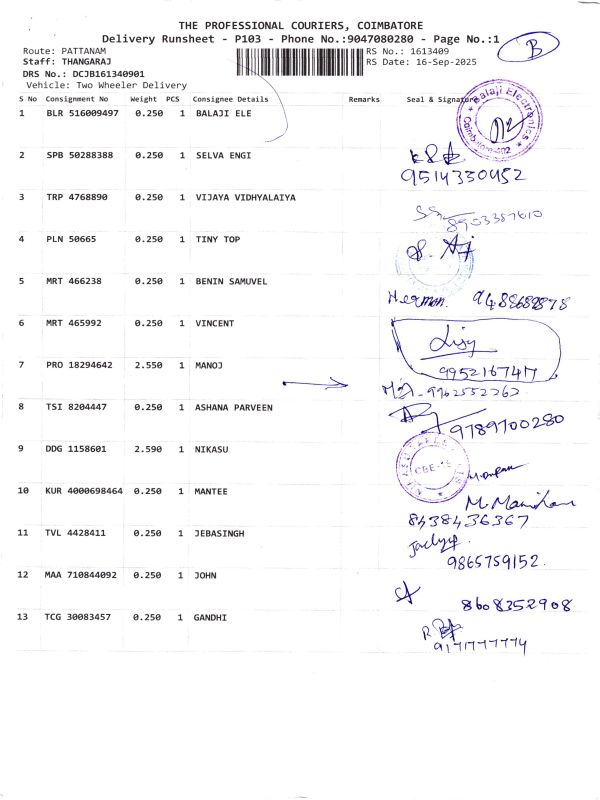 THE PROFESSIONAL COURIERS, COIMBATORE
Delivery Runsheet - P103 - Phone No.:9047080280 - Page No.:1
B
Route: PATTANAM RS No.: 1613409
Staff: THANGARAJ RS Date: 16-Sep-2025
DRS No.: DCJB161340901
Vehicle: Two Wheeler Delivery
S No Consignment No Weight PCS Consignee Details Remarks Seal & Signature
1 BLR 516009497 0.250 1 BALAJI ELE
Balaji Electronics
2 SPB 50288388 0.250 1 SELVA ENGI
9514330452
3 TRP 4768890 0.250 1 VIJAYA VIDHYALAIYA
4 PLN 50665 0.250 1 TINY TOP
5 MRT 466238 0.250 1 BENIN SAMUVEL
6 MRT 465992 0.250 1 VINCENT
7 PRO 18294642 2.550 1 MANOJ
8 TSI 8204447 0.250 1 ASHANA PARVEEN
9789700280
9 DDG 1158601 2.590 1 NIKASU
10 KUR 4000698464 0.250 1 MANTEE
8438436367
11 TVL 4428411 0.250 1 JEBASINGH
9865759152
12 MAA 710844092 0.250 1 JOHN
8608352908
13 TCG 30083457 0.250 1 GANDHI